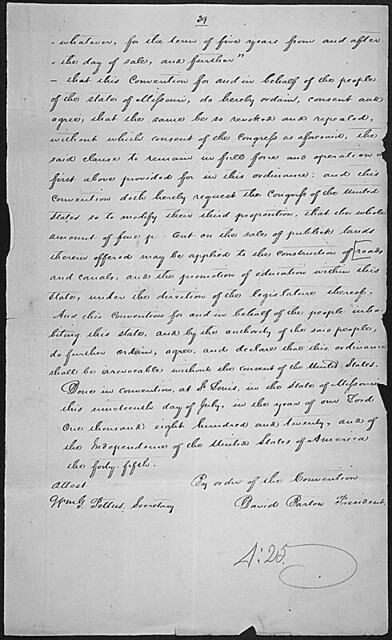 39
- whatever, for the term of five years from and after
- the day of sale, and further"
- that this Convention for and in behalf of the people
of the state of Missouri, do hereby ordain, consent and
agree, that the same be so revoked and repealed,
without which consent of the Congress as aforesaid, the
said clause to remain in full force and operation as
first above provided for in this ordinance: and this
Convention doth hereby request the Congress of the United
States so to modify their third proposition, that the whole
amount of five p. Cent on the sale of publick lands
therein offered may be applied to the construction of roads
and canals, and the promotion of education within this
State, under the direction of the legislature thereof.
And this Convention for and in behalf of the people inha-
biting this state, and by the authority of the said people,
do further ordain, agree, and declare that this ordinance
shall be irrevocable without the consent of the United States.
Done in convention, at St Louis, in the State of Missouri
this nineteenth day of July, in the year of our Lord
One thousand eight hundred and twenty, and of
the Independence of the United States of America
the forty-fifth.
By order of the Convention
Attest
Wm G. Pettus, Secretary
David Barton President.
4:25.